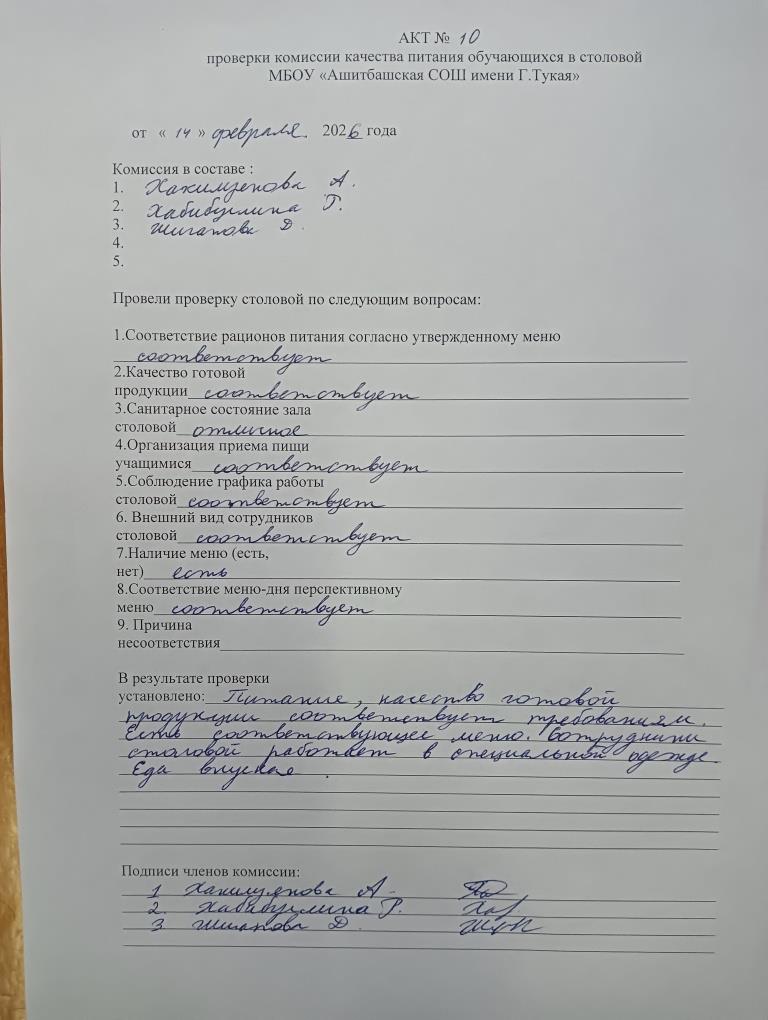 АКТ № 10
проверки комиссии качества питания обучающихся в столовой
МБОУ «Ашитбашская СОШ имени Г.Тукая»
от « 14 » февраля 2026 года
Комиссия в составе :
1. Хакимзянова А.
2. Хабибуллина Г.
3. Шигапова Д.
4.
5.
Провели проверку столовой по следующим вопросам:
1.Соответствие рационов питания согласно утвержденному меню
соответствует
2.Качество готовой
продукции соответствует
3.Санитарное состояние зала
столовой отличное
4.Организация приема пищи
учащимися соответствует
5.Соблюдение графика работы
столовой соответствует
6. Внешний вид сотрудников
столовой соответствует
7.Наличие меню (есть,
нет) есть
8.Соответствие меню-дня перспективному
меню соответствует
9. Причина
несоответствия
В результате проверки
установлено: Питание, качество готовой
продукции соответствует требованиям.
Есть соответствующее меню. Сотрудники
столовой работает в специальной одежде.
Еда вкусная.
Подписи членов комиссии:
1 Хакимзянова А.
2. Хабибуллина Г.
3. Шигапова Д.